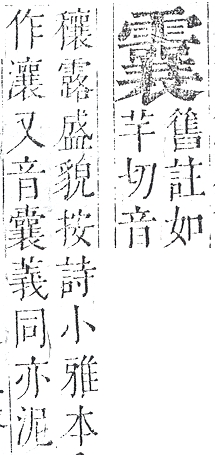 舊註如
羊切音
穰露盛貌按詩小雅本
作瀼又音囊義同亦泥